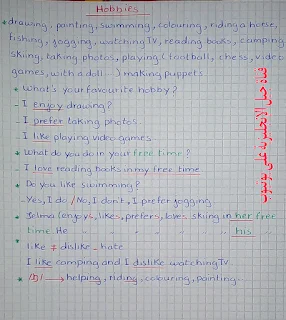 Hobbies
* drawing, painting, swimming, colouring, riding a horse,
fishing, jogging, watching TV, reading books, camping
skiing, taking photos, playing (football, chess, video
games, with a doll...) making puppets
* What's your favourite hobby?
- I enjoy drawing?
- I prefer taking photos
- I like playing video games
* What do you do in your free time?
- I love reading books in my free time
* Do you like swimming?
- Yes, I do / No, I don't, I prefer jogging
* Selma (enjoys, likes, prefers, loves skiing in her free
time He " " " " " his
*
like ≠ dislike - hate
I like camping and I dislike watching TV
* /ŋ/ → helping, riding, colouring, painting...
قناة جمل الانجليزية على يوتيوب